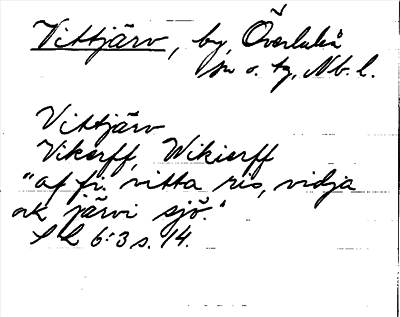 Vittjärv, by, Överluleå
sn o. tg, Nb. l.
Vittjärv
Vikerff, Wikierff
"af fi. vitta ris, vidja
ock järvi sjö."
SL 6:3 s. 14.